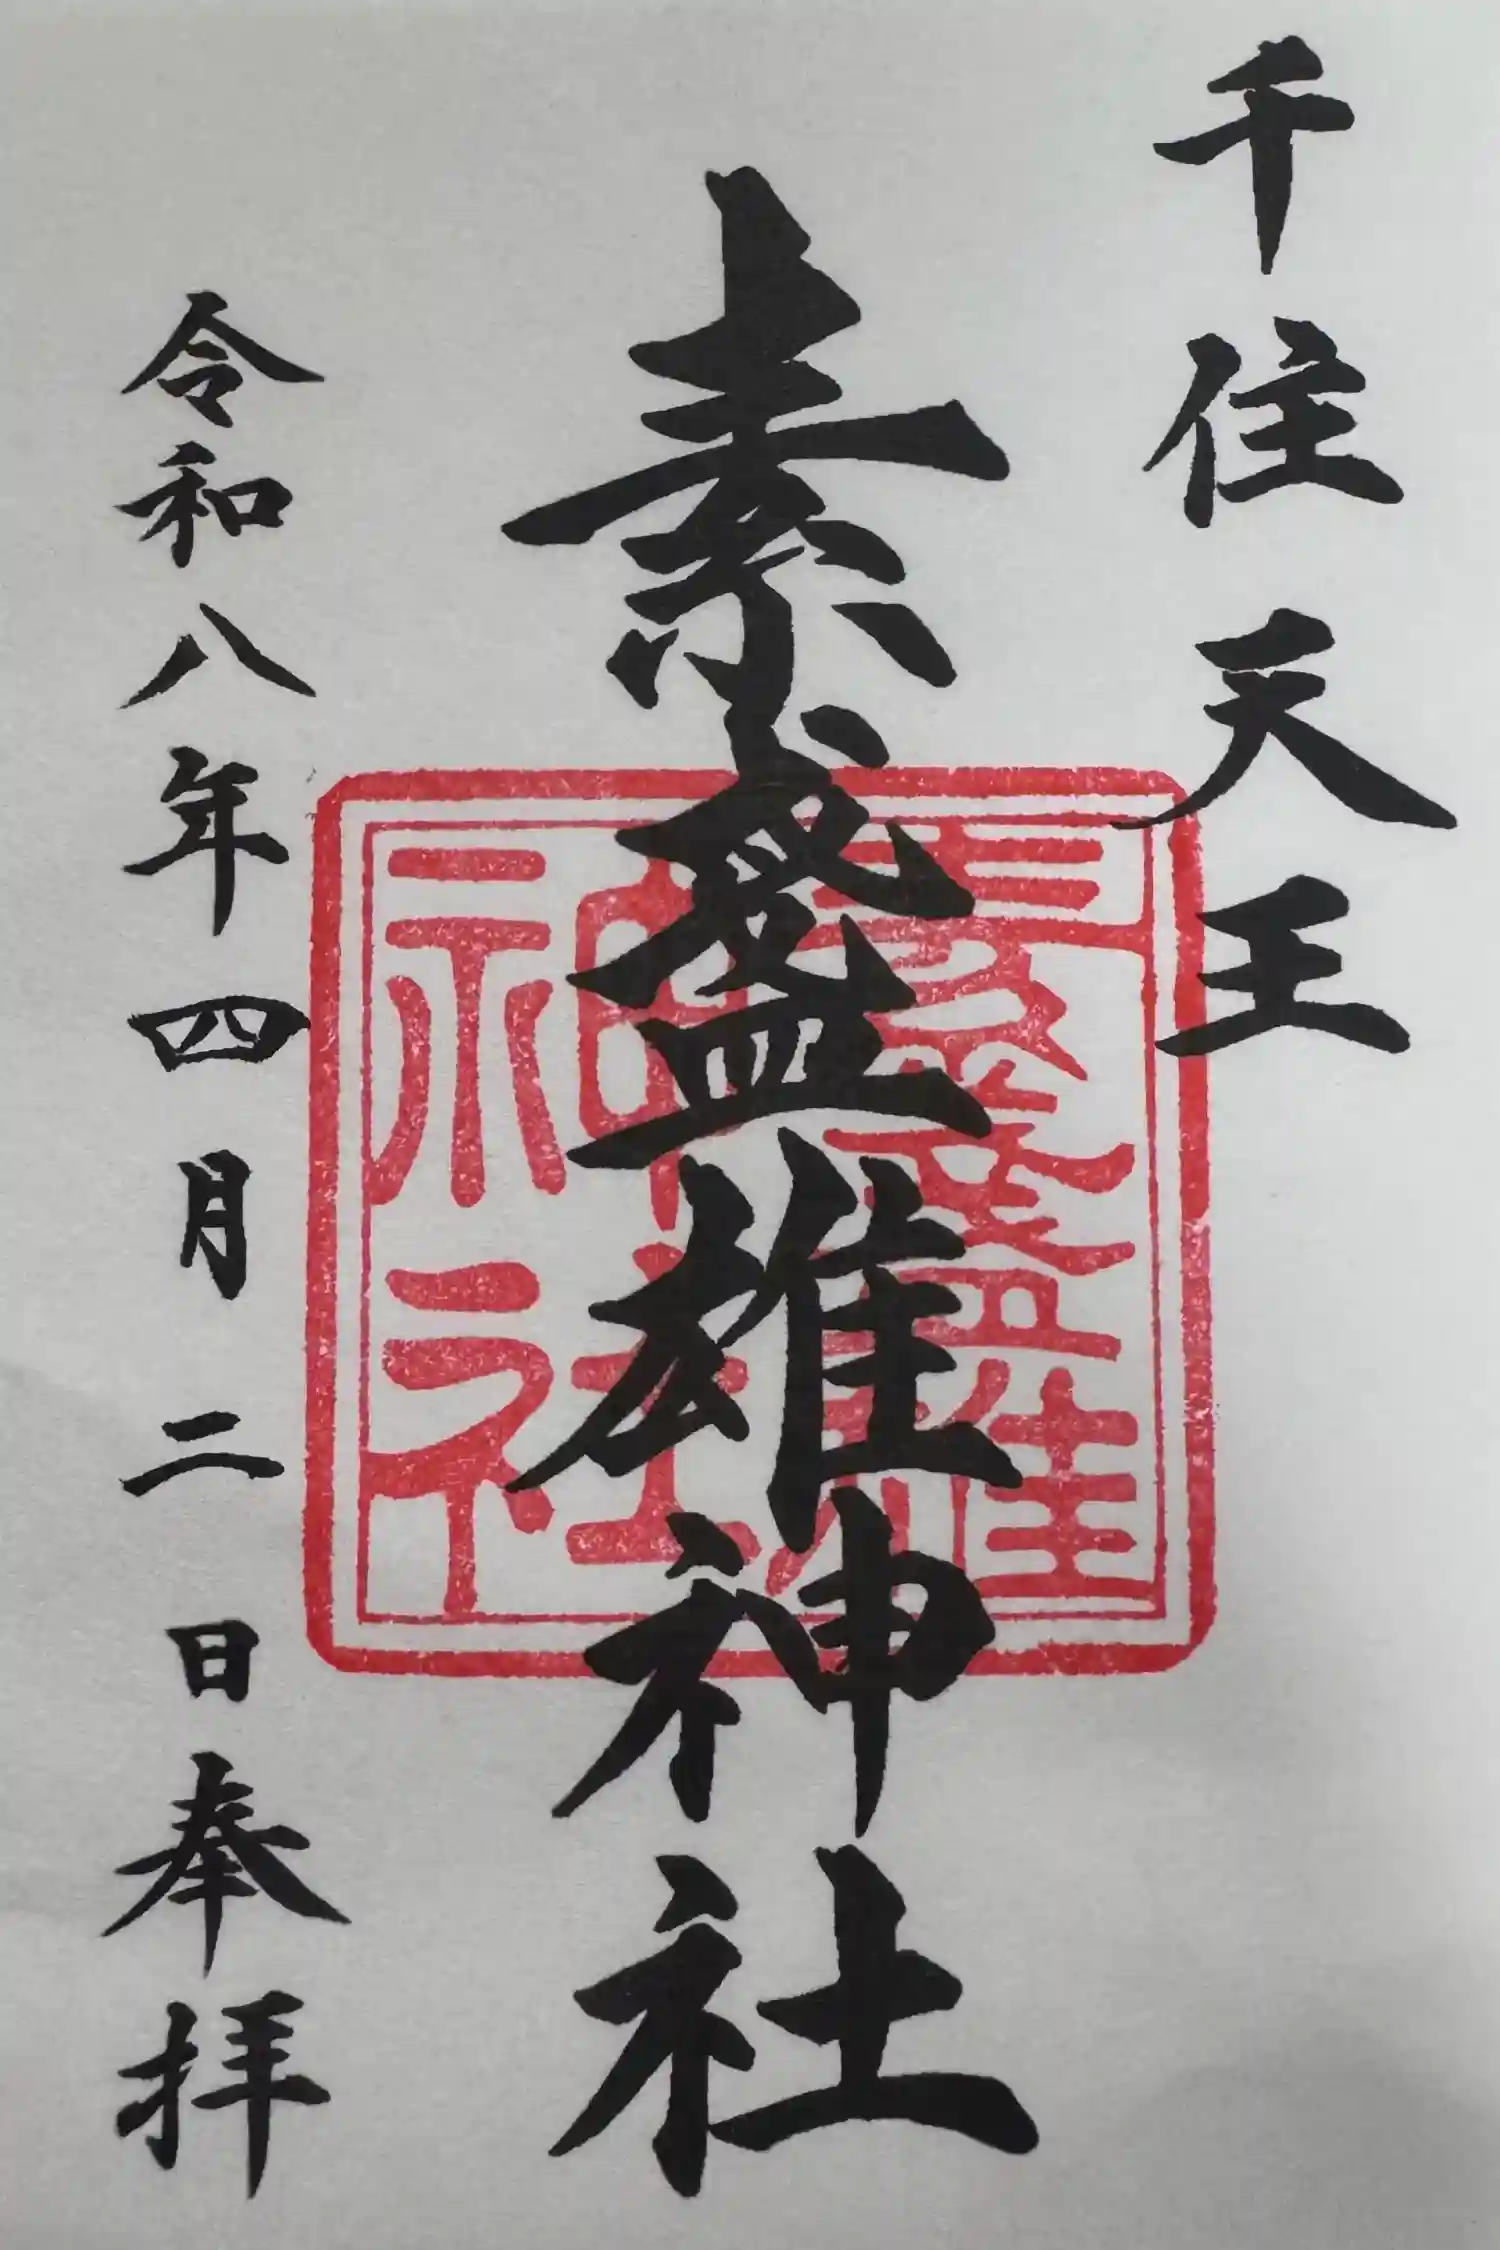 千住天王
素盞雄神社
素盞雄
神社
令和八年四月二日奉拝